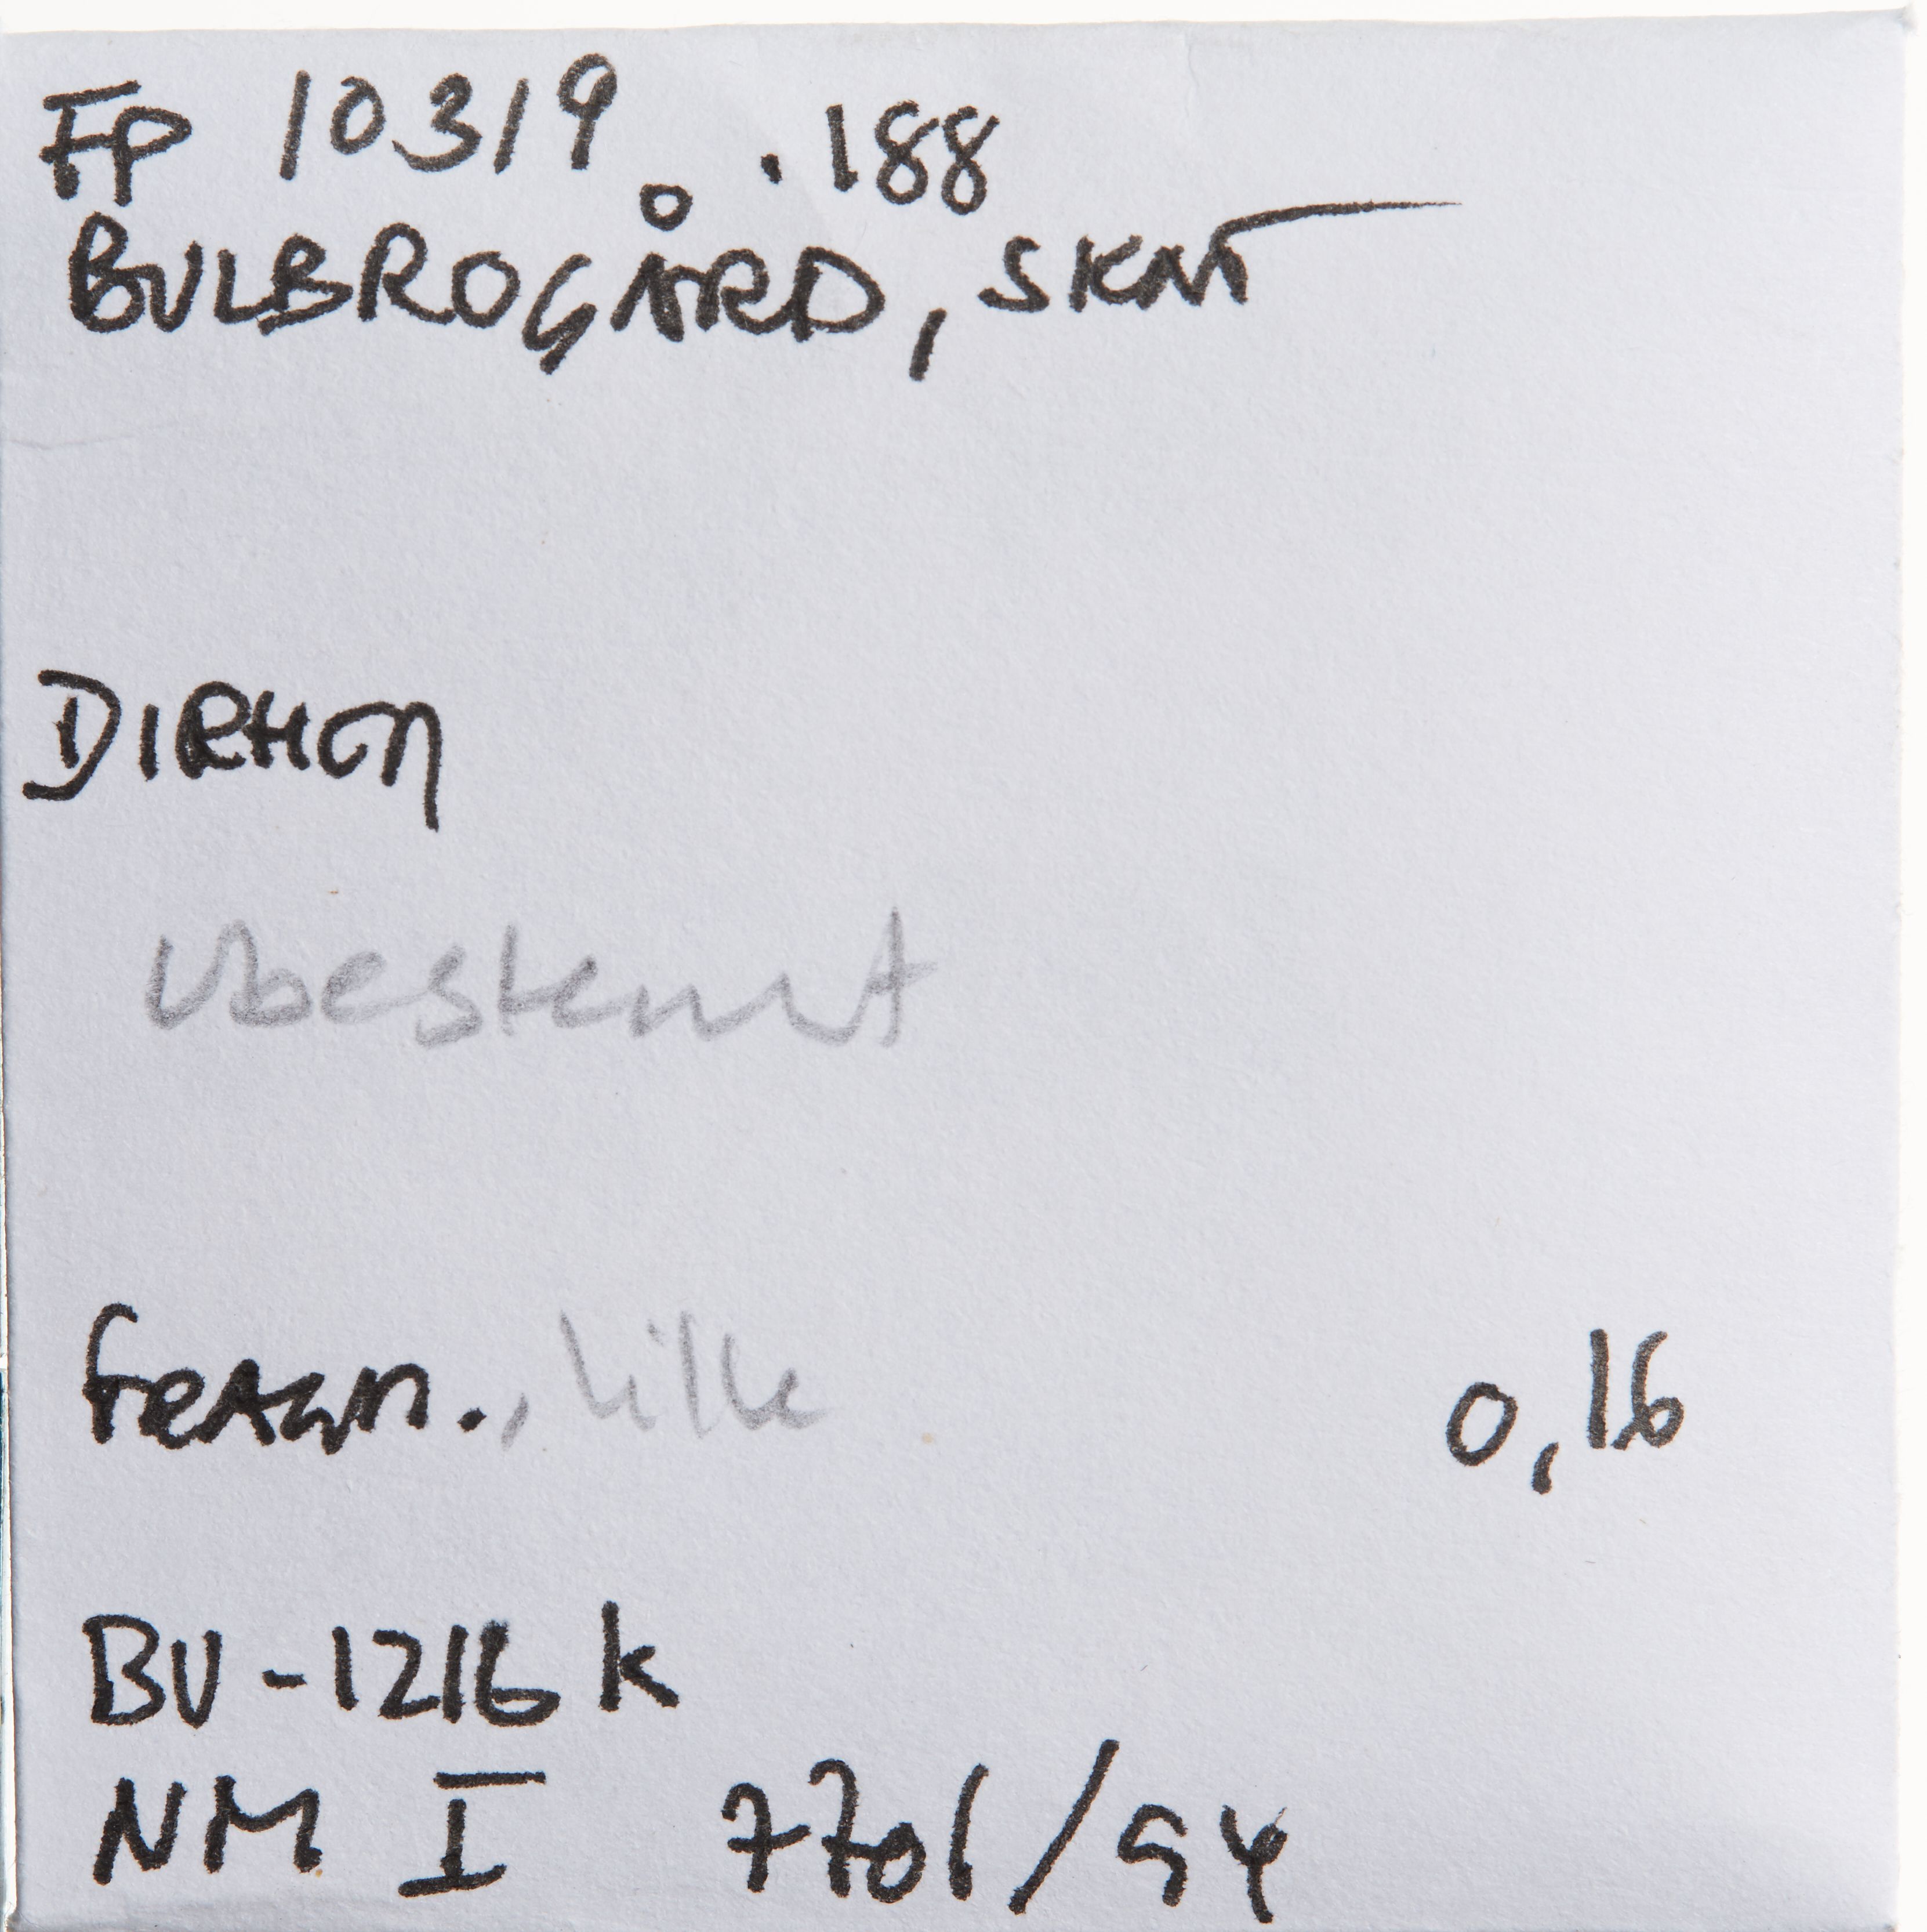 FP 10319 .188
BULBROGÅRD, SKAT
DIRHEM
Ubestemt
FRAGM., lille 0,16
BU-1216 k
NM I 7701/94